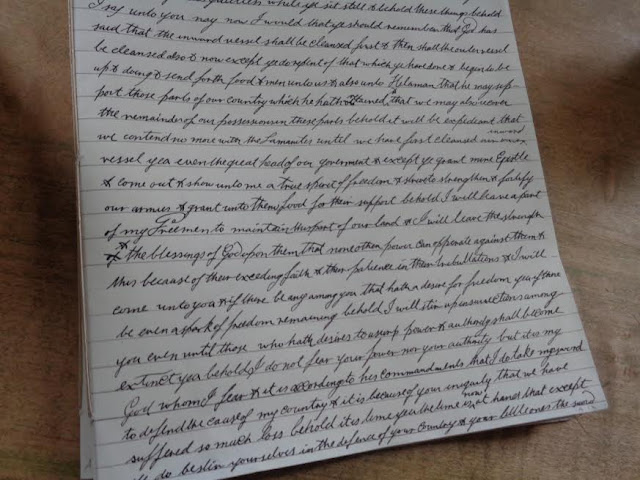 whiles ye sit still & behold these things behold
I say unto you nay now I would that ye should remember that God has
said that the inward vessel shall be cleansed first & then shall the outer vessel
be cleansed also & now except ye do repent of that which ye have done & begin to be
up & doing & send forth food & men unto us & also unto Helaman that he may sup-
port those parts of our country which he hath retained, that we may also recover
the remainder of our possessions in these parts behold it will be expedient that
we contend no more with the Lamanites until we have first cleansed our inward
vessel yea even the great head of our goverment & except ye grant mine Epistle
& come out & show unto me a true spirit of freedom & strive to strengthen & fortify
our armies & grant unto them food for their support behold I will leave a part
of my Freemen to maintain this part of our land & I will leave the strength
& the blessings of God upon them that none other power can opperate against them &
this because of their exceeding faith & their patience in their tribulations & I will
come unto you & if there be any among you that hath a desire for freedom yea if there
be even a spark of freedom remaining behold I will stir up insurrections among
you even until those who hath desires to usurp power & authority shall become
extinct yea behold I do not fear your power nor your authority but it is my
God whom I fear & it is according to his commandments that I do take my sword
to defend the cause of my country & it is because of your iniquity that we have
suffered so much loss behold it is time yea the time is now at hand that except
ye do bestir yourselves in the defence of your country & your little ones the sword